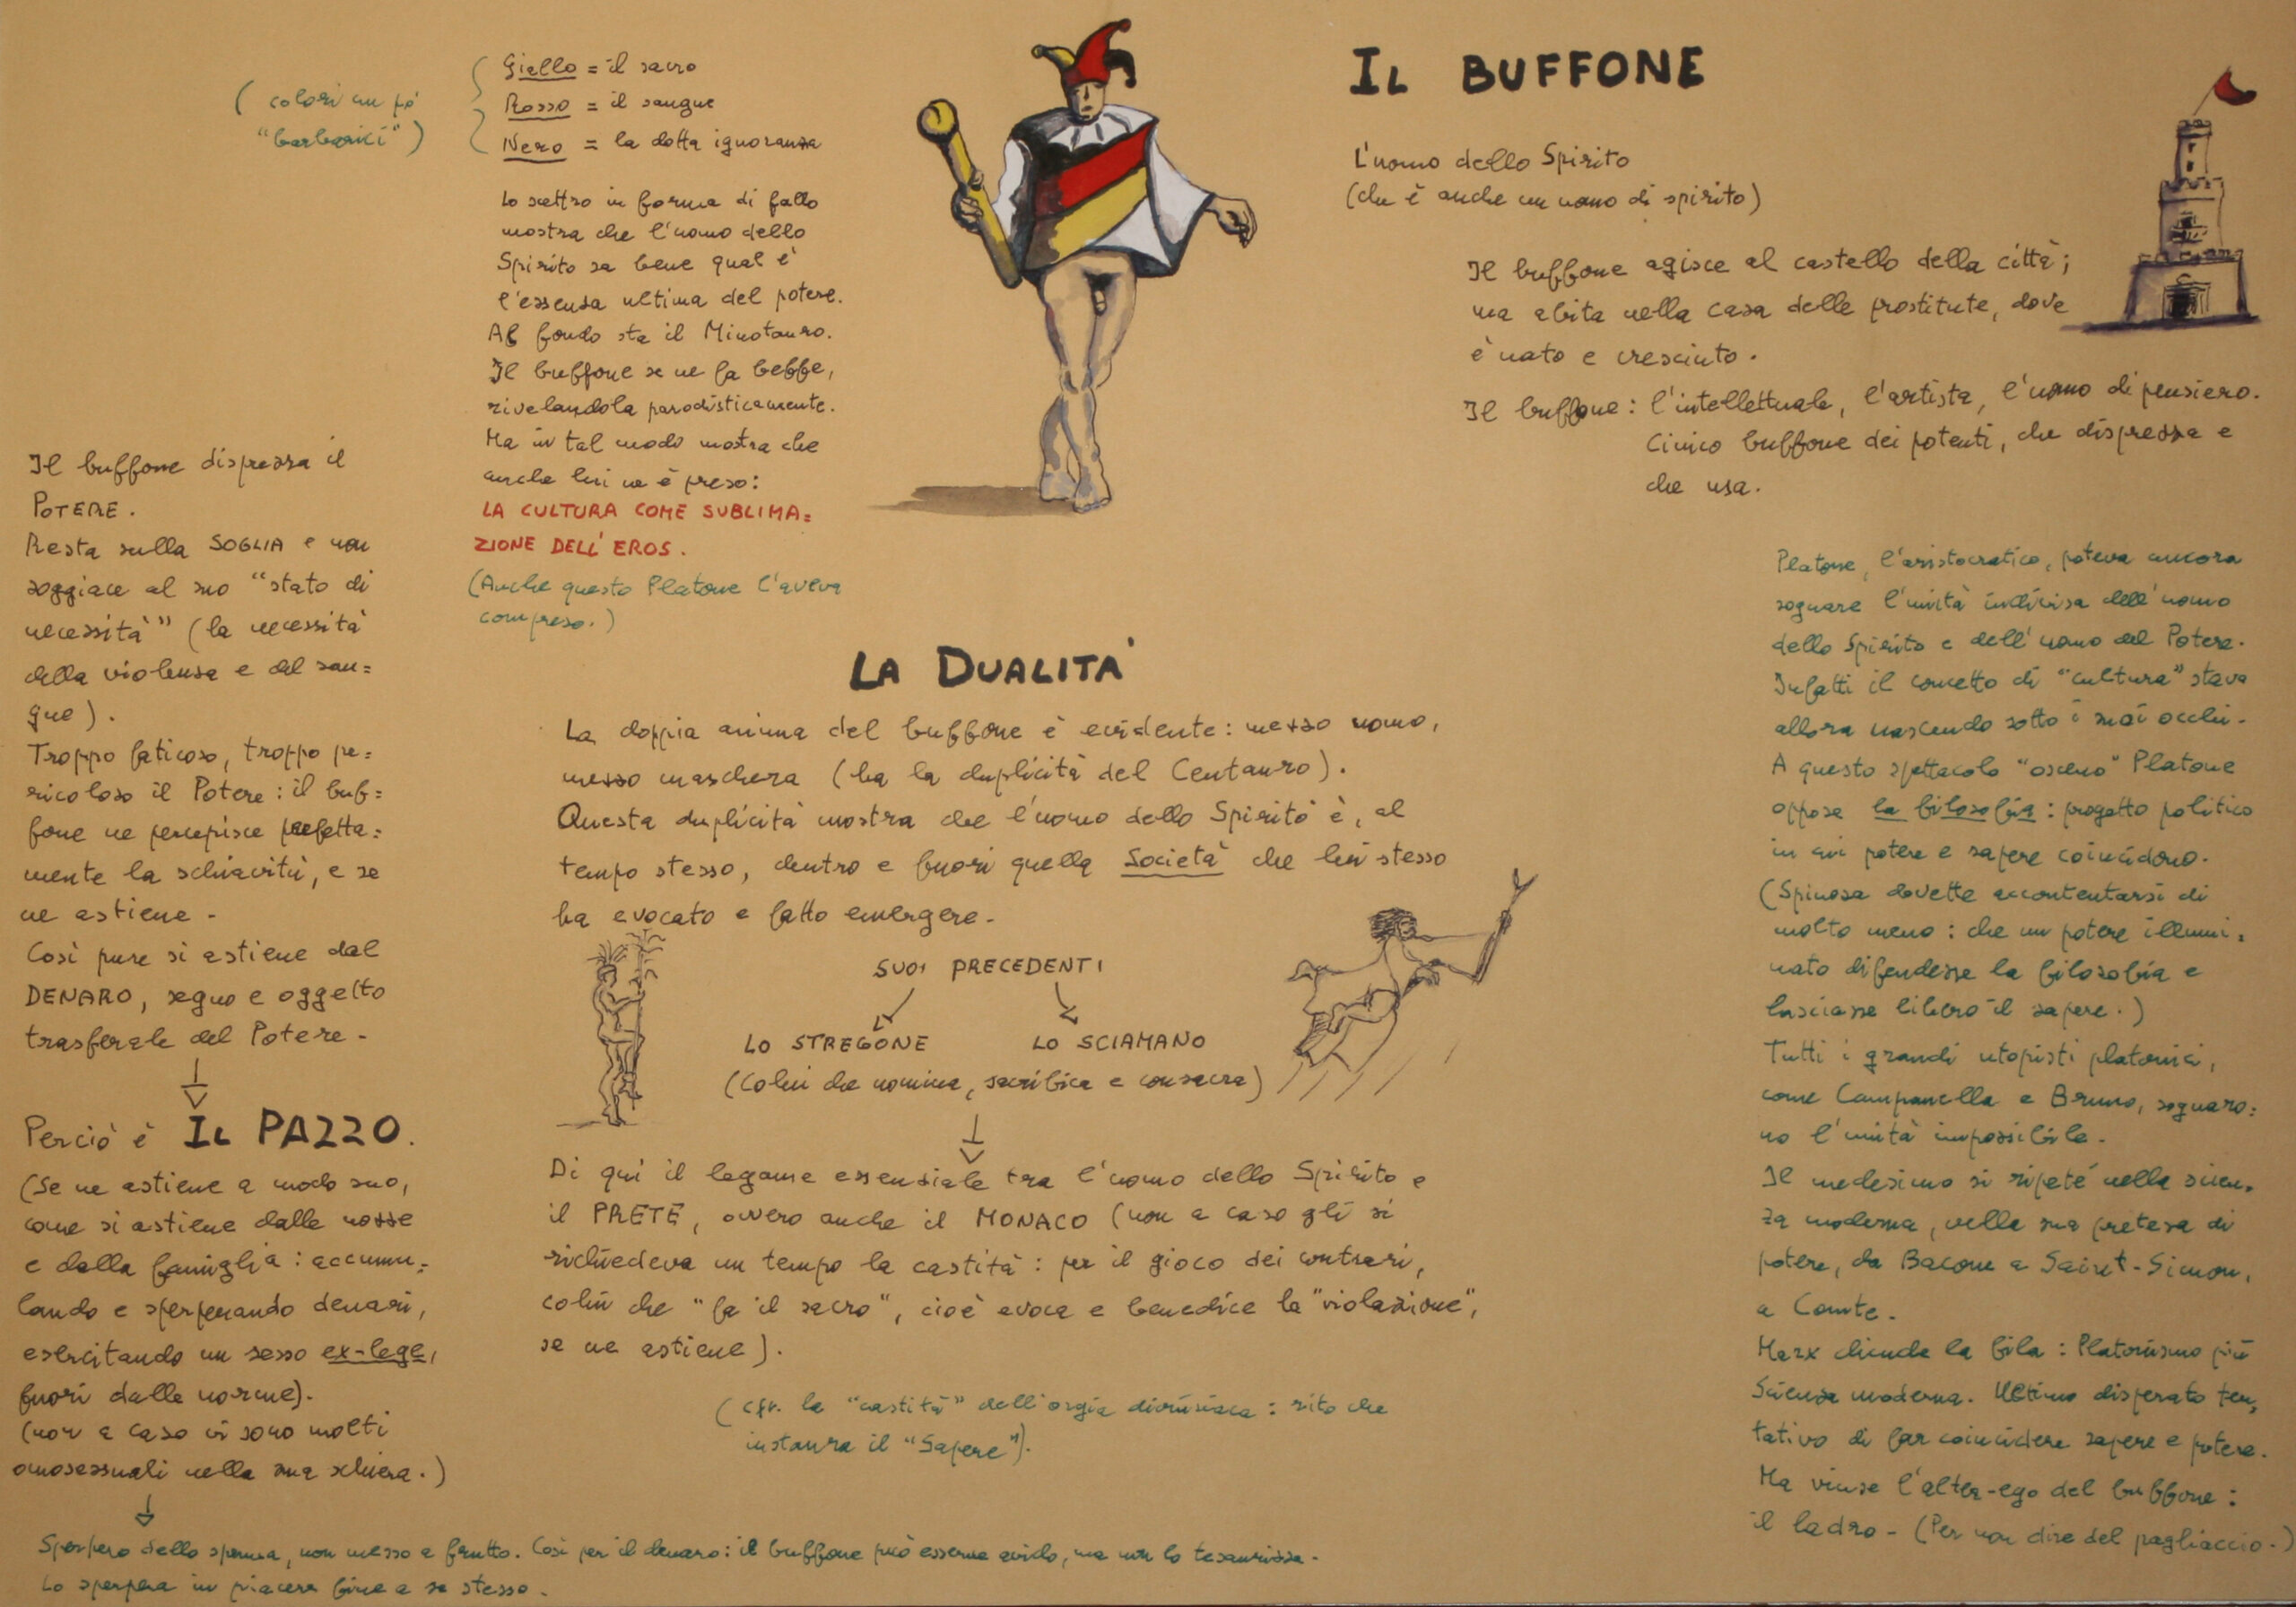 IL BUFFONE
L'uomo dello Spirito
(che è anche un uomo di spirito)
Il buffone agisce al castello della città;
ma abita nella casa delle prostitute, dove
è nato e cresciuto.
Il buffone: l'intellettuale, l'artista, l'uomo di pensiero.
Cinico buffone dei potenti, che disprezza e
che usa.
(colori un po'
"barbarici")
Giallo = il sacro
Rosso = il sangue
Nero = la dotta ignoranza
Lo scettro in forma di fallo
mostra che l'uomo dello
Spirito sa bene qual è
l'essenza ultima del potere.
Al fondo sta il Minotauro.
Il buffone se ne fa beffe,
rivelandola parodisticamente.
Ma in tal modo mostra che
anche lui ne è preso:
LA CULTURA COME SUBLIMA=
ZIONE DELL'EROS.
(Anche questo Platone l'aveva
compreso.)
Il buffone disprezza il
POTERE.
Resta sulla SOGLIA e non
soggiace al suo "stato di
necessità" (la necessità
della violenza e del san=
gue).
Troppo faticoso, troppo pe=
ricoloso il Potere: il buf=
fone ne percepisce perfetta=
mente la schiavitù, e se
ne astiene.
Così pure si astiene dal
DENARO, segno e oggetto
trasferale del Potere.
Perciò è IL PAZZO.
(Se ne astiene a modo suo,
come si astiene dalle nozze
e dalla famiglia: accumu=
lando e sperperando denari,
esercitando un sesso ex-lege,
fuori dalle norme).
(non a caso vi sono molti
omosessuali nella sua schiera.)
Sperpero dello sperma, non messo a frutto. Così per il denaro: il buffone può esserne avido, ma non lo tesaurizza.
Lo sperpera in piacere fine a se stesso.
LA DUALITA'
La doppia anima del buffone è evidente: mezzo uomo,
mezzo maschera (ha la duplicità del Centauro).
Questa duplicità mostra che l'uomo dello Spirito è, al
tempo stesso, dentro e fuori quella Società che lui stesso
ha evocato e fatto emergere.
SUOI PRECEDENTI
LO STREGONE LO SCIAMANO
(Colui che nomina, sacrifica e consacra)
Di qui il legame essenziale tra l'uomo dello Spirito e
il PRETE, ovvero anche il MONACO (non a caso gli si
richiedeva un tempo la castità: per il gioco dei contrari,
colui che "fa il sacro", cioè evoca e benedice la "violazione",
se ne astiene).
(cfr. la "castità" dell'orgia dionisiaca: rito che
instaura il "Sapere").
Platone, l'aristocratico, poteva ancora
sognare l'unità indivisa dell'uomo
dello Spirito e dell'uomo del Potere.
Infatti il concetto di "cultura" stava
allora nascendo sotto i suoi occhi.
A questo spettacolo "osceno" Platone
oppose la filosofia: progetto politico
in cui potere e sapere coincidono.
(Spinosa dovette accontentarsi di
molto meno: che un potere illumi=
nato difendesse la filosofia e
lasciasse libero il sapere.)
Tutti i grandi utopisti platonici,
come Campanella e Bruno, sognaro=
no l'unità impossibile.
Il medesimo si ripeté nella scien=
za moderna, nella sua pretesa di
potere, da Bacone a Saint-Simon,
a Comte.
Marx chiude la fila: Platonismo più
Scienza moderna. Ultimo disperato ten=
tativo di far coincidere sapere e potere.
Ma vinse l'alter-ego del buffone:
il ladro - (Per non dire del pagliaccio.)